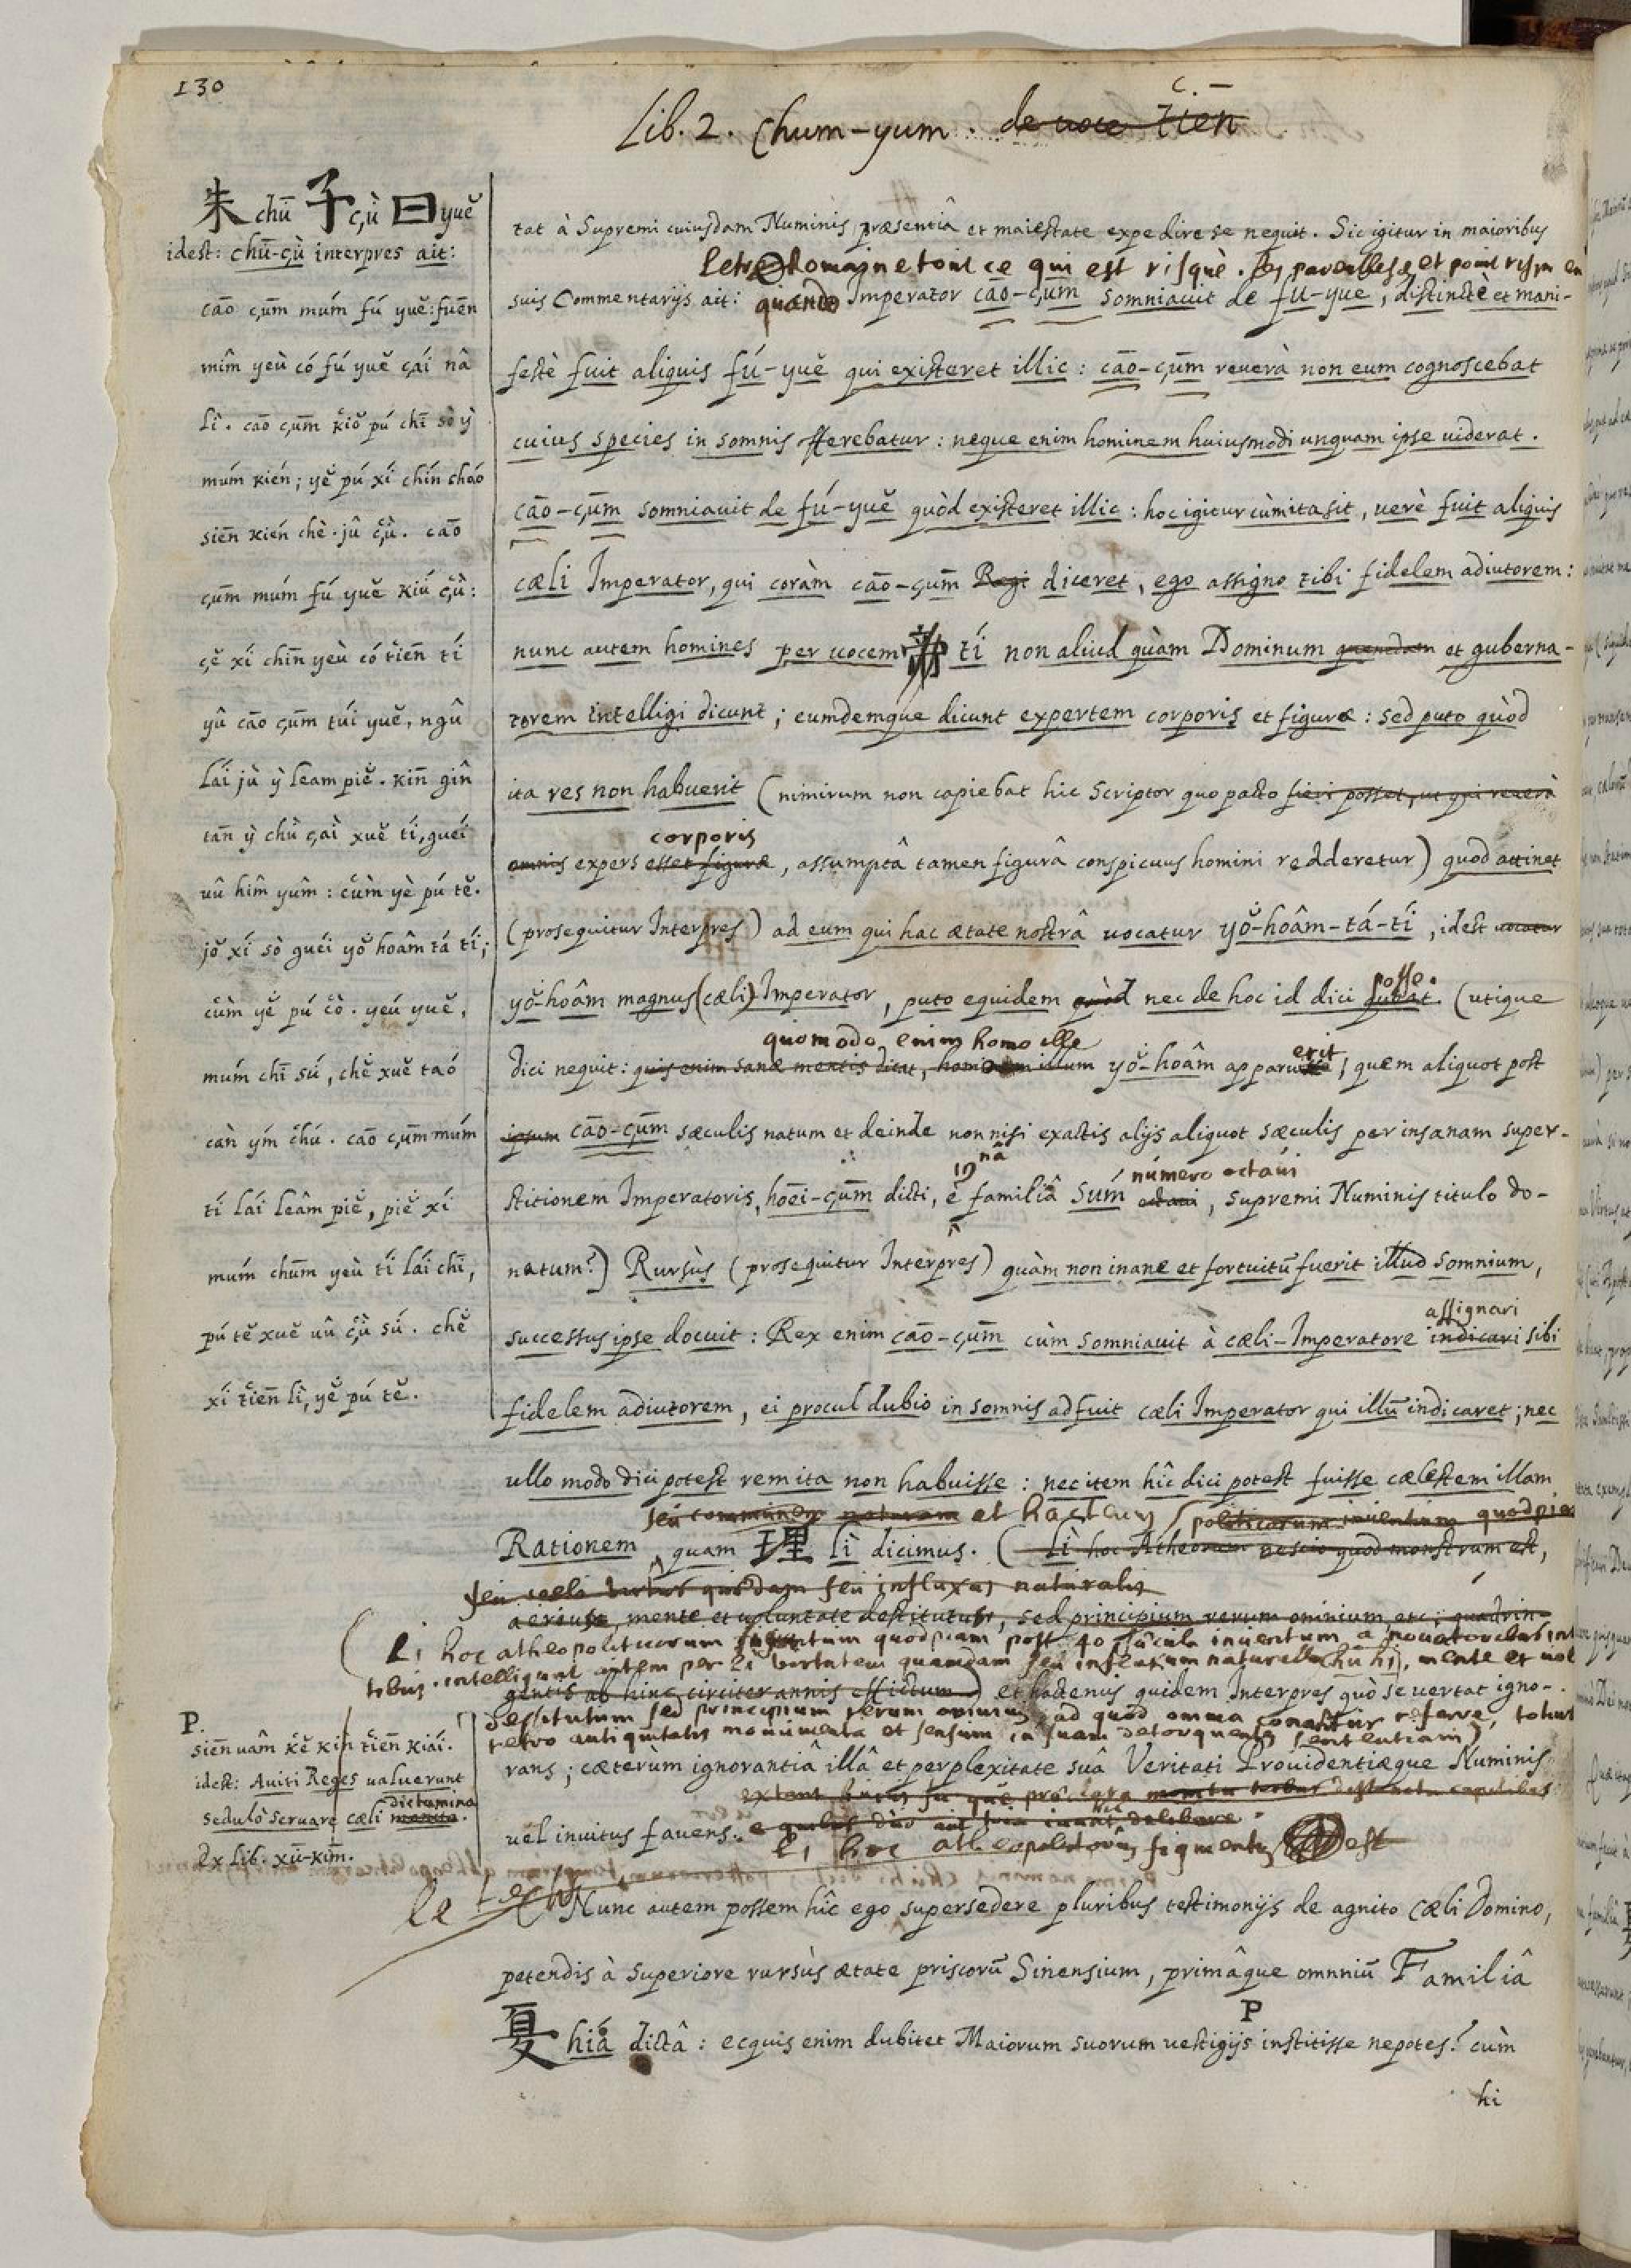 130
Lib. 2. Chum-yum. de voce tiēn
朱 chū 子 çù 曰 yuĕ
idest: chū-çù interpres ait:
cāo çūm múm fú yuĕ: fuēn
mîm yeù có fú yuĕ çái nâ
lì. cāo çūm kiŏ pú chī sò ỳ
múm kién; yĕ pú xí chín cháo
siēn kién chè. jû çù. cāo
çūm múm fú yuĕ kiú çù:
çĕ xí chīn yeù có tiēn tí
yû cāo çūm túi yuĕ, ngû
lái jù ỳ leam piĕ. kīn gîn
tān ỳ chù çaì xuĕ tí, guéi
uû hîm yùm: cùm yè pú tĕ.
jŏ xí sò guéi yŏ hoâm tá tí;
cùm yĕ pú cò. yeú yuĕ,
múm chī sú, chĕ xuĕ taó
càn ým chú. cāo çūm múm
tí lái leâm piĕ, piĕ xí
múm chūm yeù tí lái chī,
pú tĕ xuĕ uû çù sú. chĕ
xí tiēn lì, yĕ pú tĕ.
P.
siēn uâm kĕ kin tiēn kiái.
idest: Aviti Reges valuerunt
dictamina
sedulò servare cæli monita.
Ex lib. xū-kīm.
tat à Supremi cuiusdam Numinis præsentiâ et maiestate expedire se nequit. Sic igitur in maioribus
letre Romaine tout ce qui est risquè. les parentheses et point risqu en
suis Commentarijs ait: quando Imperator cāo-çūm somniavit de fú-yuĕ, distinctè et mani-
festè fuit aliquis fú-yuĕ qui existeret illic: cāo-çūm reverà non eum cognoscebat
cuius species in somnis offerebatur: neque enim hominem huiusmodi unquam ipse viderat.
cāo-çūm somniavit de fú-yuĕ quòd existeret illic: hoc igitur cùm ita sit, verè fuit aliquis
cæli Imperator, qui coràm cāo-çūm Regi diceret, ego assigno tibi fidelem adiutorem:
nunc autem homines per vocem tí non aliud quàm Dominum quendam et guberna-
torem intelligi dicunt; eumdemque dicunt expertem corporis et figuræ: sed puto quòd
ita res non habuerit (nimirum non capiebat hic Scriptor quo pacto fieri posset, ut qui reverà
corporis
omnis expers esset figuræ, assumptâ tamen figurâ conspicuus homini redderetur) quod attinet
(prosequitur Interpres) ad eum qui hac ætate nostrâ vocatur yŏ-hoâm-tá-tí, idest vocatur
posse.
yŏ-hoâm magnus (cæli) Imperator, puto equidem quòd nec de hoc id dici queat. (utique
quomodo enim homo ille
erit
dici nequit: quis enim sanæ mentis dicat, hominem illum yŏ-hoâm apparuisse, quem aliquot post
ipsum cāo-çūm sæculis natum et deinde non nisi exactis alijs aliquot sæculis per insanam super-
número octavi
stitionem Imperatoris, hoēi-çūm dicti, è familiâ súm octavi, supremi Numinis titulo do-
natum?) Rursùs (prosequitur Interpres) quàm non inane et fortuitū fuerit illud somnium,
assignari
successus ipse docuit: Rex enim cāo-çūm cùm somniavit à cæli-Imperatore indicari sibi
fidelem adiutorem, ei procul dubio in somnis adfuit cæli Imperator qui illū indicaret; nec
ullo modo dici potest rem ita non habuisse: nec item hîc dici potest fuisse cælestem illam
seu communem naturam et hactenus politicorum inventum quodpiam
Rationem quam 理 lì dicimus. (Lì hoc Atheorum nescio quod monstrum est,
seu cæli virtus quædam seu influxus naturalis
mente et voluntate destitutus, sed principium rerum omnium etc: quadrin-
( Li hoc atheopoliticorum figmentum quodpiam post 40 sæcula inventum a novatoribus
intelligunt autem per Li virtutem quamdam seu influxum naturalem mente et vol
gentis ab hinc circiter annis effictum) et hactenus quidem Interpres quò se vertat igno-
destitutum sed principium rerum omnium, ad quod omnia conantur referre, totius
retro antiquitatis monumenta et sensum in suam detorquentes sententiam)
rans; cæterùm ignorantiâ illâ et perplexitate suâ Veritati Providentiæque Numinis
vel invitus favens.
Li hoc atheopoliticorū figmentum est
le
Nunc autem possem hîc ego supersedere pluribus testimonijs de agnito Cæli Domino,
petendis à superiore rursùs ætate priscorū Sinensium, primâque omnniū Familiâ
P
夏 hiá dictâ: ecquis enim dubitet Maiorum suorum vestigijs institisse nepotes? cùm
hi